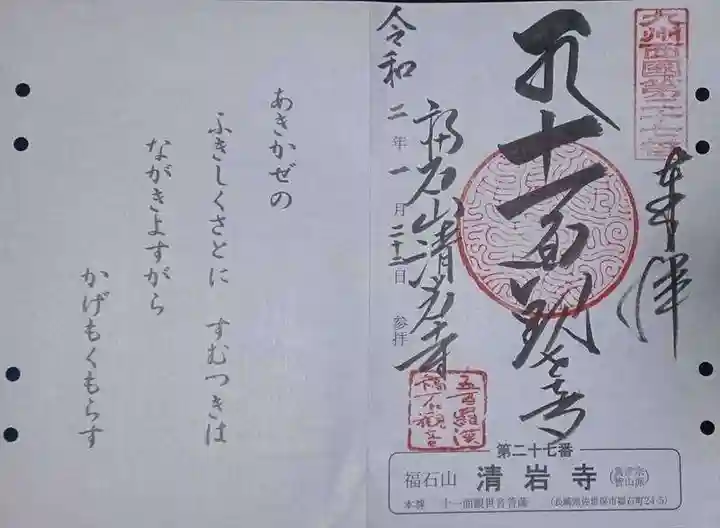 九州西国第二十七番
奉拝
十一面観音
令和二年一月二十三日参拝
福石山清岩寺
五百羅漢
福石観音
第二十七番
福石山 清岩寺
本尊 十一面観世音菩薩 (長崎県佐世保市福石町24-5)
あきかぜの
ふきしくさとに すむつきは
ながきよすがら
かげもくもらす